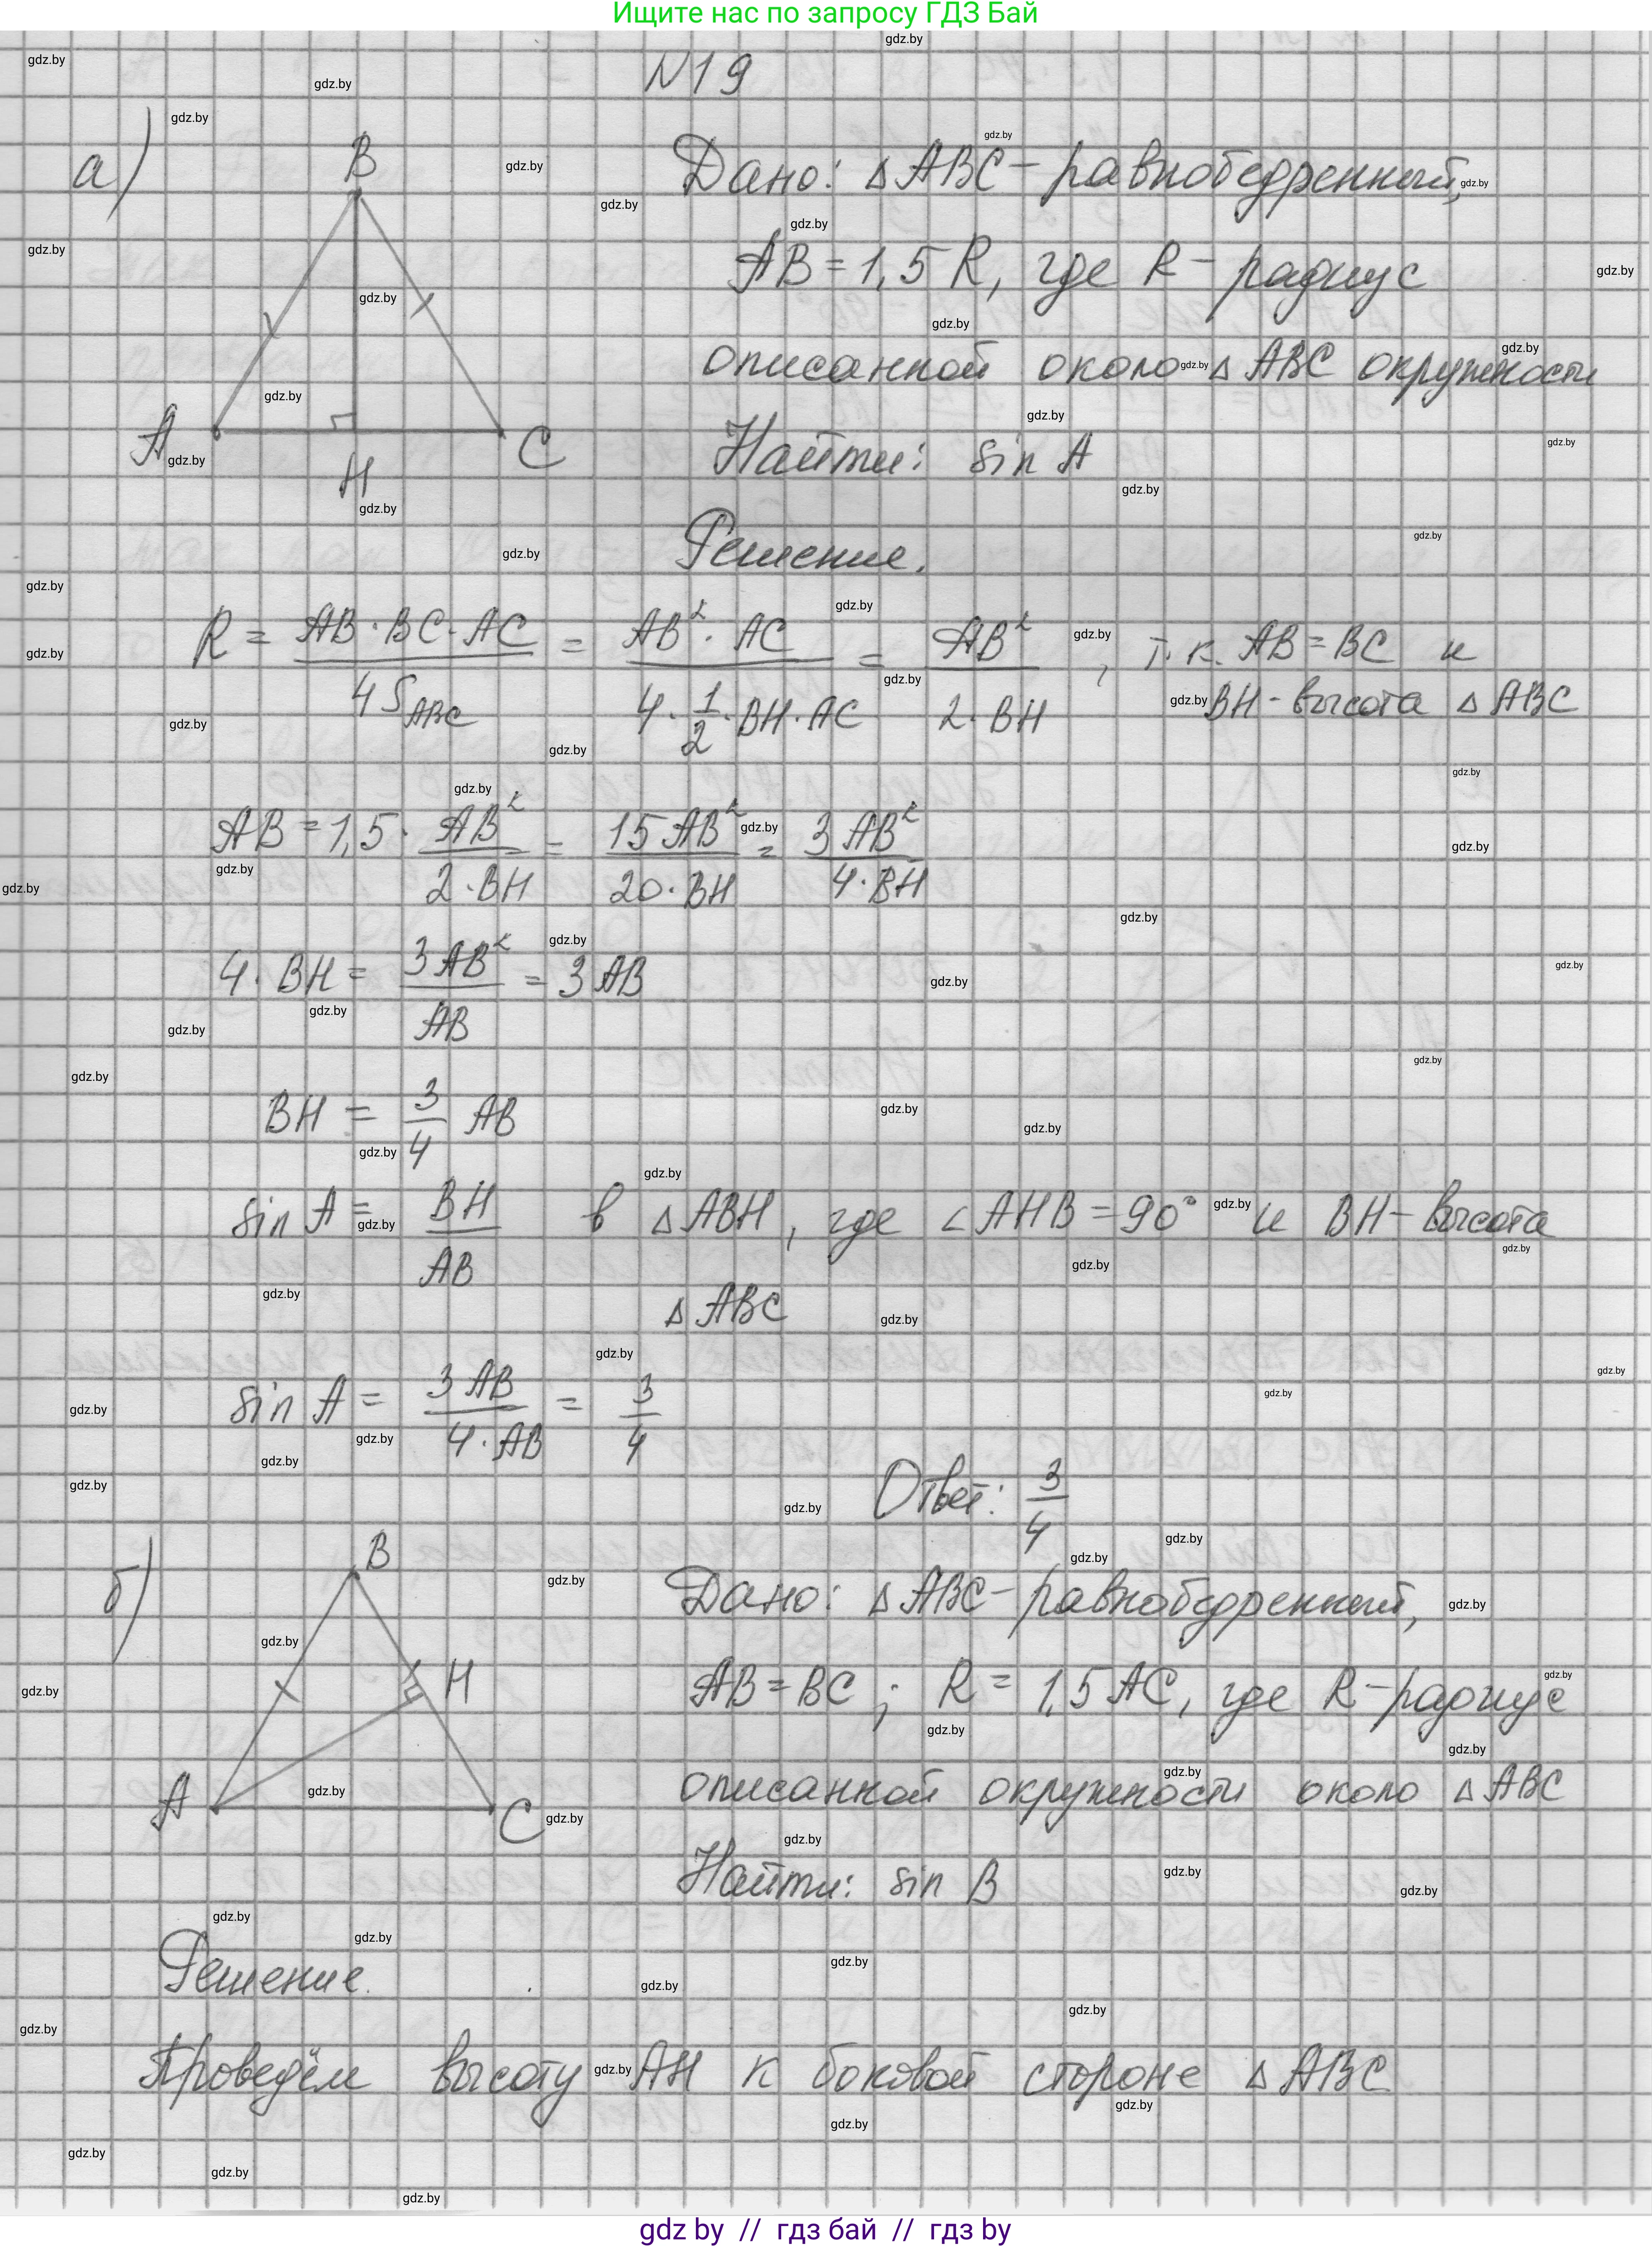 Ищите нас по запросу ГДЗ Бай
N19
а)
B
A
H
C
Дано: △ABC - равнобедренный,
AB = 1,5 R, где R - радиус
описанной около △ABC окружности
Найти: sin A
Решение.
R = AB·BC·AC / 4S_ABC = AB²·AC / 4·1/2·BH·AC = AB² / 2·BH , т.к. AB = BC и
BH - высота △ABC
AB = 1,5 · AB² / 2·BH = 15 AB² / 20·BH = 3 AB² / 4·BH
4·BH = 3AB² / AB = 3 AB
BH = 3/4 AB
sin A = BH / AB в △ABH, где ∠AHB = 90° и BH - высота
△ABC
sin A = 3 AB / 4·AB = 3/4
Ответ: 3/4
б)
B
H
A
C
Дано: △ABC - равнобедренный,
AB = BC ; R = 1,5 AC, где R - радиус
описанной окружности около △ABC
Найти: sin B
Решение.
Проведём высоту AH к боковой стороне △ABC
gdz by // гдз бай // гдз by